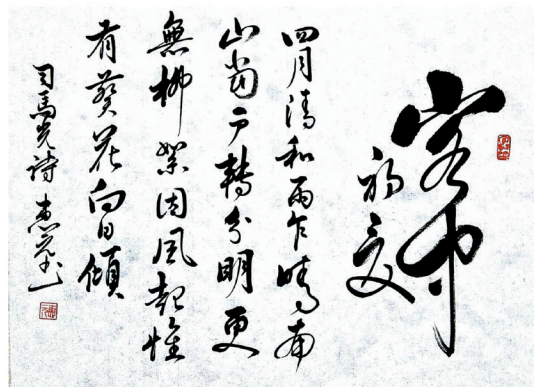 客中
初夏
四月清和雨乍晴南
山當戶轉分明更
無柳絮因風起惟
有葵花向日傾
司馬光詩